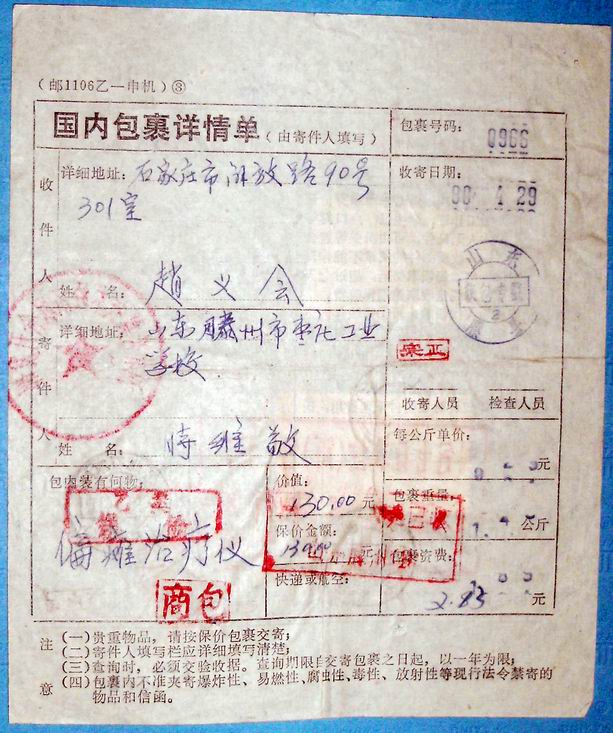 （邮1106乙—申机）③
国内包裹详情单（由寄件人填写）
包裹号码：
0966
收寄日期：
90.1.29
收件人
详细地址：石家庄市解放路90号
301室
姓名：赵义会
山东
寄件人
详细地址：山东滕州市枣庄工业
学校
姓名：时维敬
宋正
收寄人员 检查人员
每公斤单价：
元
包内装有何物：
偏瘫治疗仪
价值：
130.00元
保价金额：
130.00元
快递或航空：
包裹重量
公斤
包裹资费：
2.85元
商包
注意
（一）贵重物品，请按保价包裹交寄；
（二）寄件人填写栏应详细填写清楚；
（三）查询时，必须交验收据。查询期限自交寄包裹之日起，以一年为限；
（四）包裹内不准夹寄爆炸性、易燃性、腐蚀性、毒性、放射性等现行法令禁寄的
物品和信函。